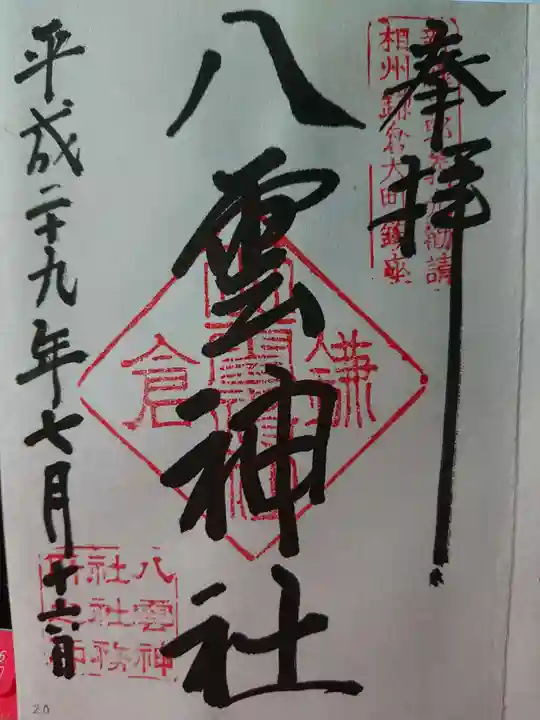 奉拝
相州鎌倉大町鎮座
八雲神社
鎌倉
平成二十九年七月十六日
八雲神
社社務
20